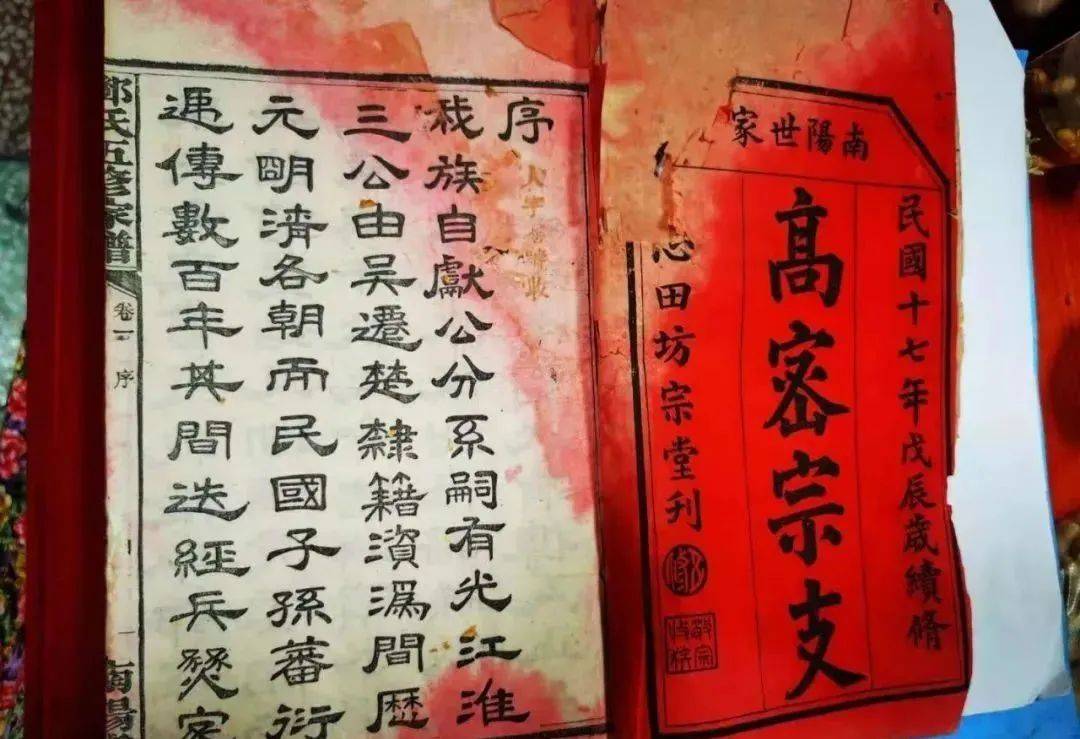 南陽世家
民國十七年戊辰歲續脩
高密宗支
田坊宗堂刊
敬宗收族
序
我族自獻公分系嗣有光江淮
三公由吳遷楚隸籍澬溈間歷
元明清各朝而民國子孫蕃衍
遞傳數百年其間迭經兵燹
鄧氏五修家譜
卷一
序
南陽